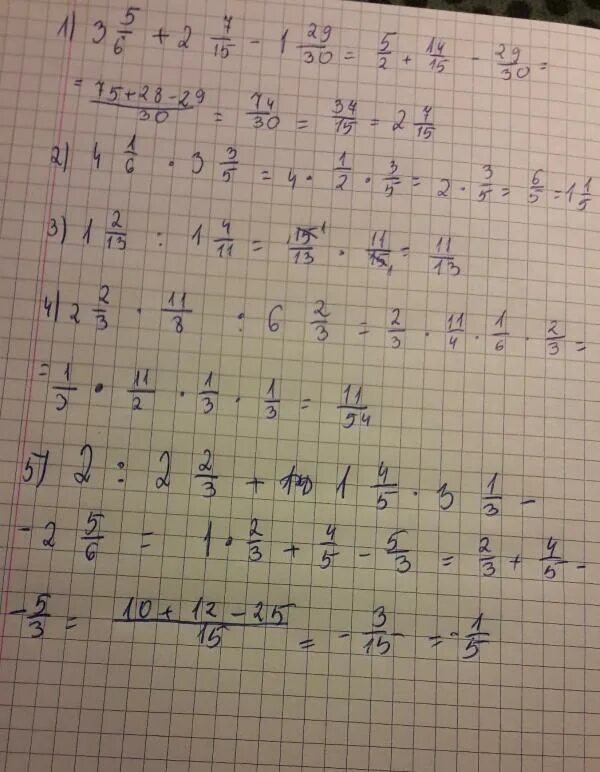 1) 3 5/6 + 2 7/15 - 1 29/30 = 5/2 + 14/15 - 29/30 =
= (75+28-29)/30 = 74/30 = 34/15 = 2 7/15
2) 4 1/6 · 3 3/5 = 4 · 1/2 · 3/5 = 2 · 3/5 = 6/5 = 1 1/5
3) 1 2/13 : 1 4/11 = 15/13 · 11/15 = 11/13
4) 2 2/3 · 11/8 : 6 2/3 = 2/3 · 11/4 · 1/6 · 2/3 =
= 1/3 · 11/2 · 1/3 · 1/3 = 11/54
5) 2 : 2 2/3 + 1 4/5 · 3 1/3 -
- 2 5/6 = 1 · 2/3 + 4/5 - 5/3 = 2/3 + 4/5 -
- 5/3 = (10 + 12 - 25)/15 = - 3/15 = - 1/5